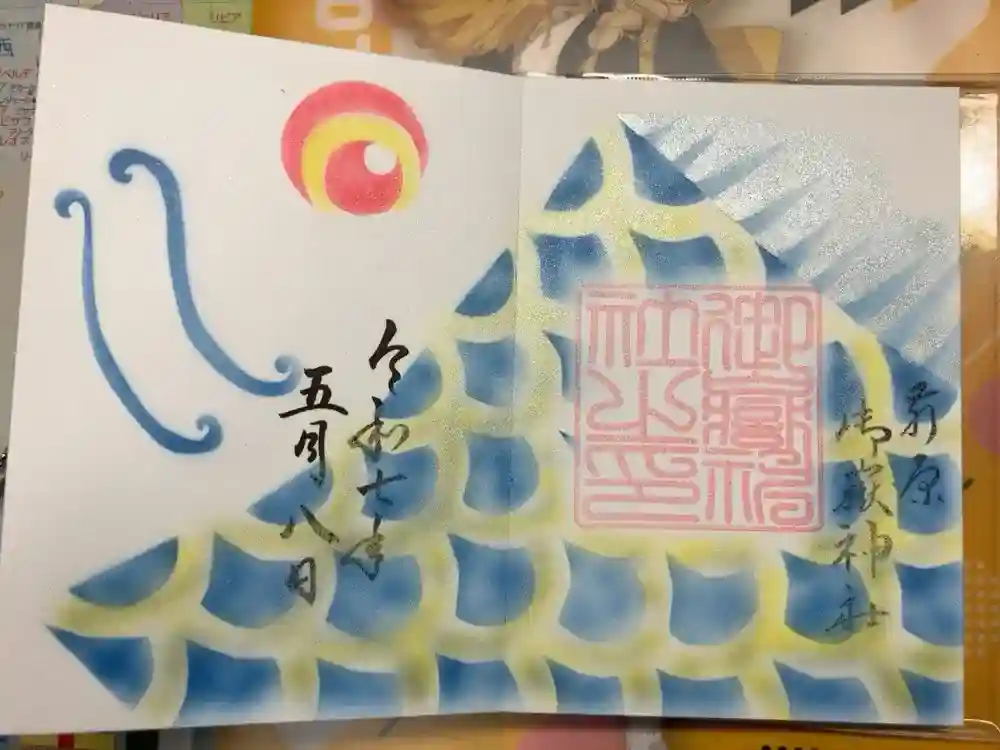 前原
御嶽神社
御嶽神
社之印
令和七年
五月八日